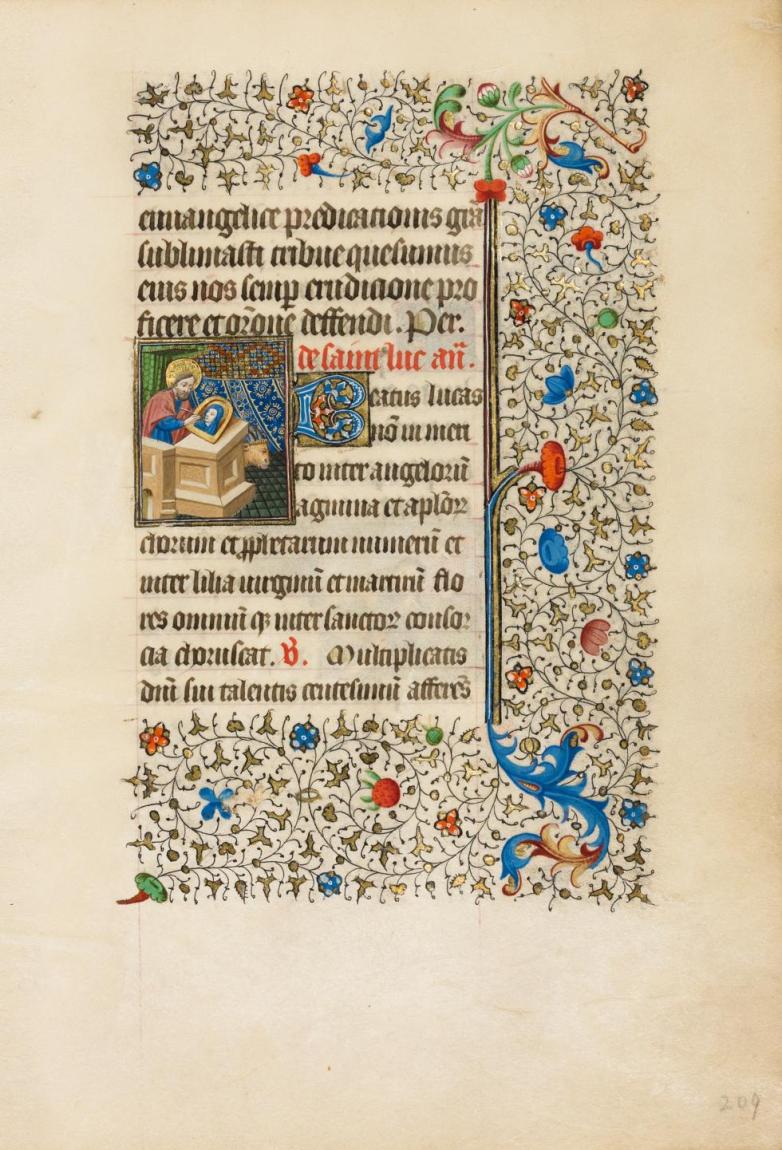 euuangelice predicacionis gr̃a
sublimasti tribue quesumus
eius nos semp erudicione pro
ficere et or̃one deffendi. Per.
de saint luc an̄.
Beatus lucas
nō in meri
to inter angelorū
agmina et aplōꝝ
chorum et ꝓphetarum numerū et
inter lilia uirginū et martirū flo
res omniū qꝫ inter sanctoꝝ consor
cia choruscat. V̉. Multiplicatis
dn̄i sui talentis centesimū afferēs
209